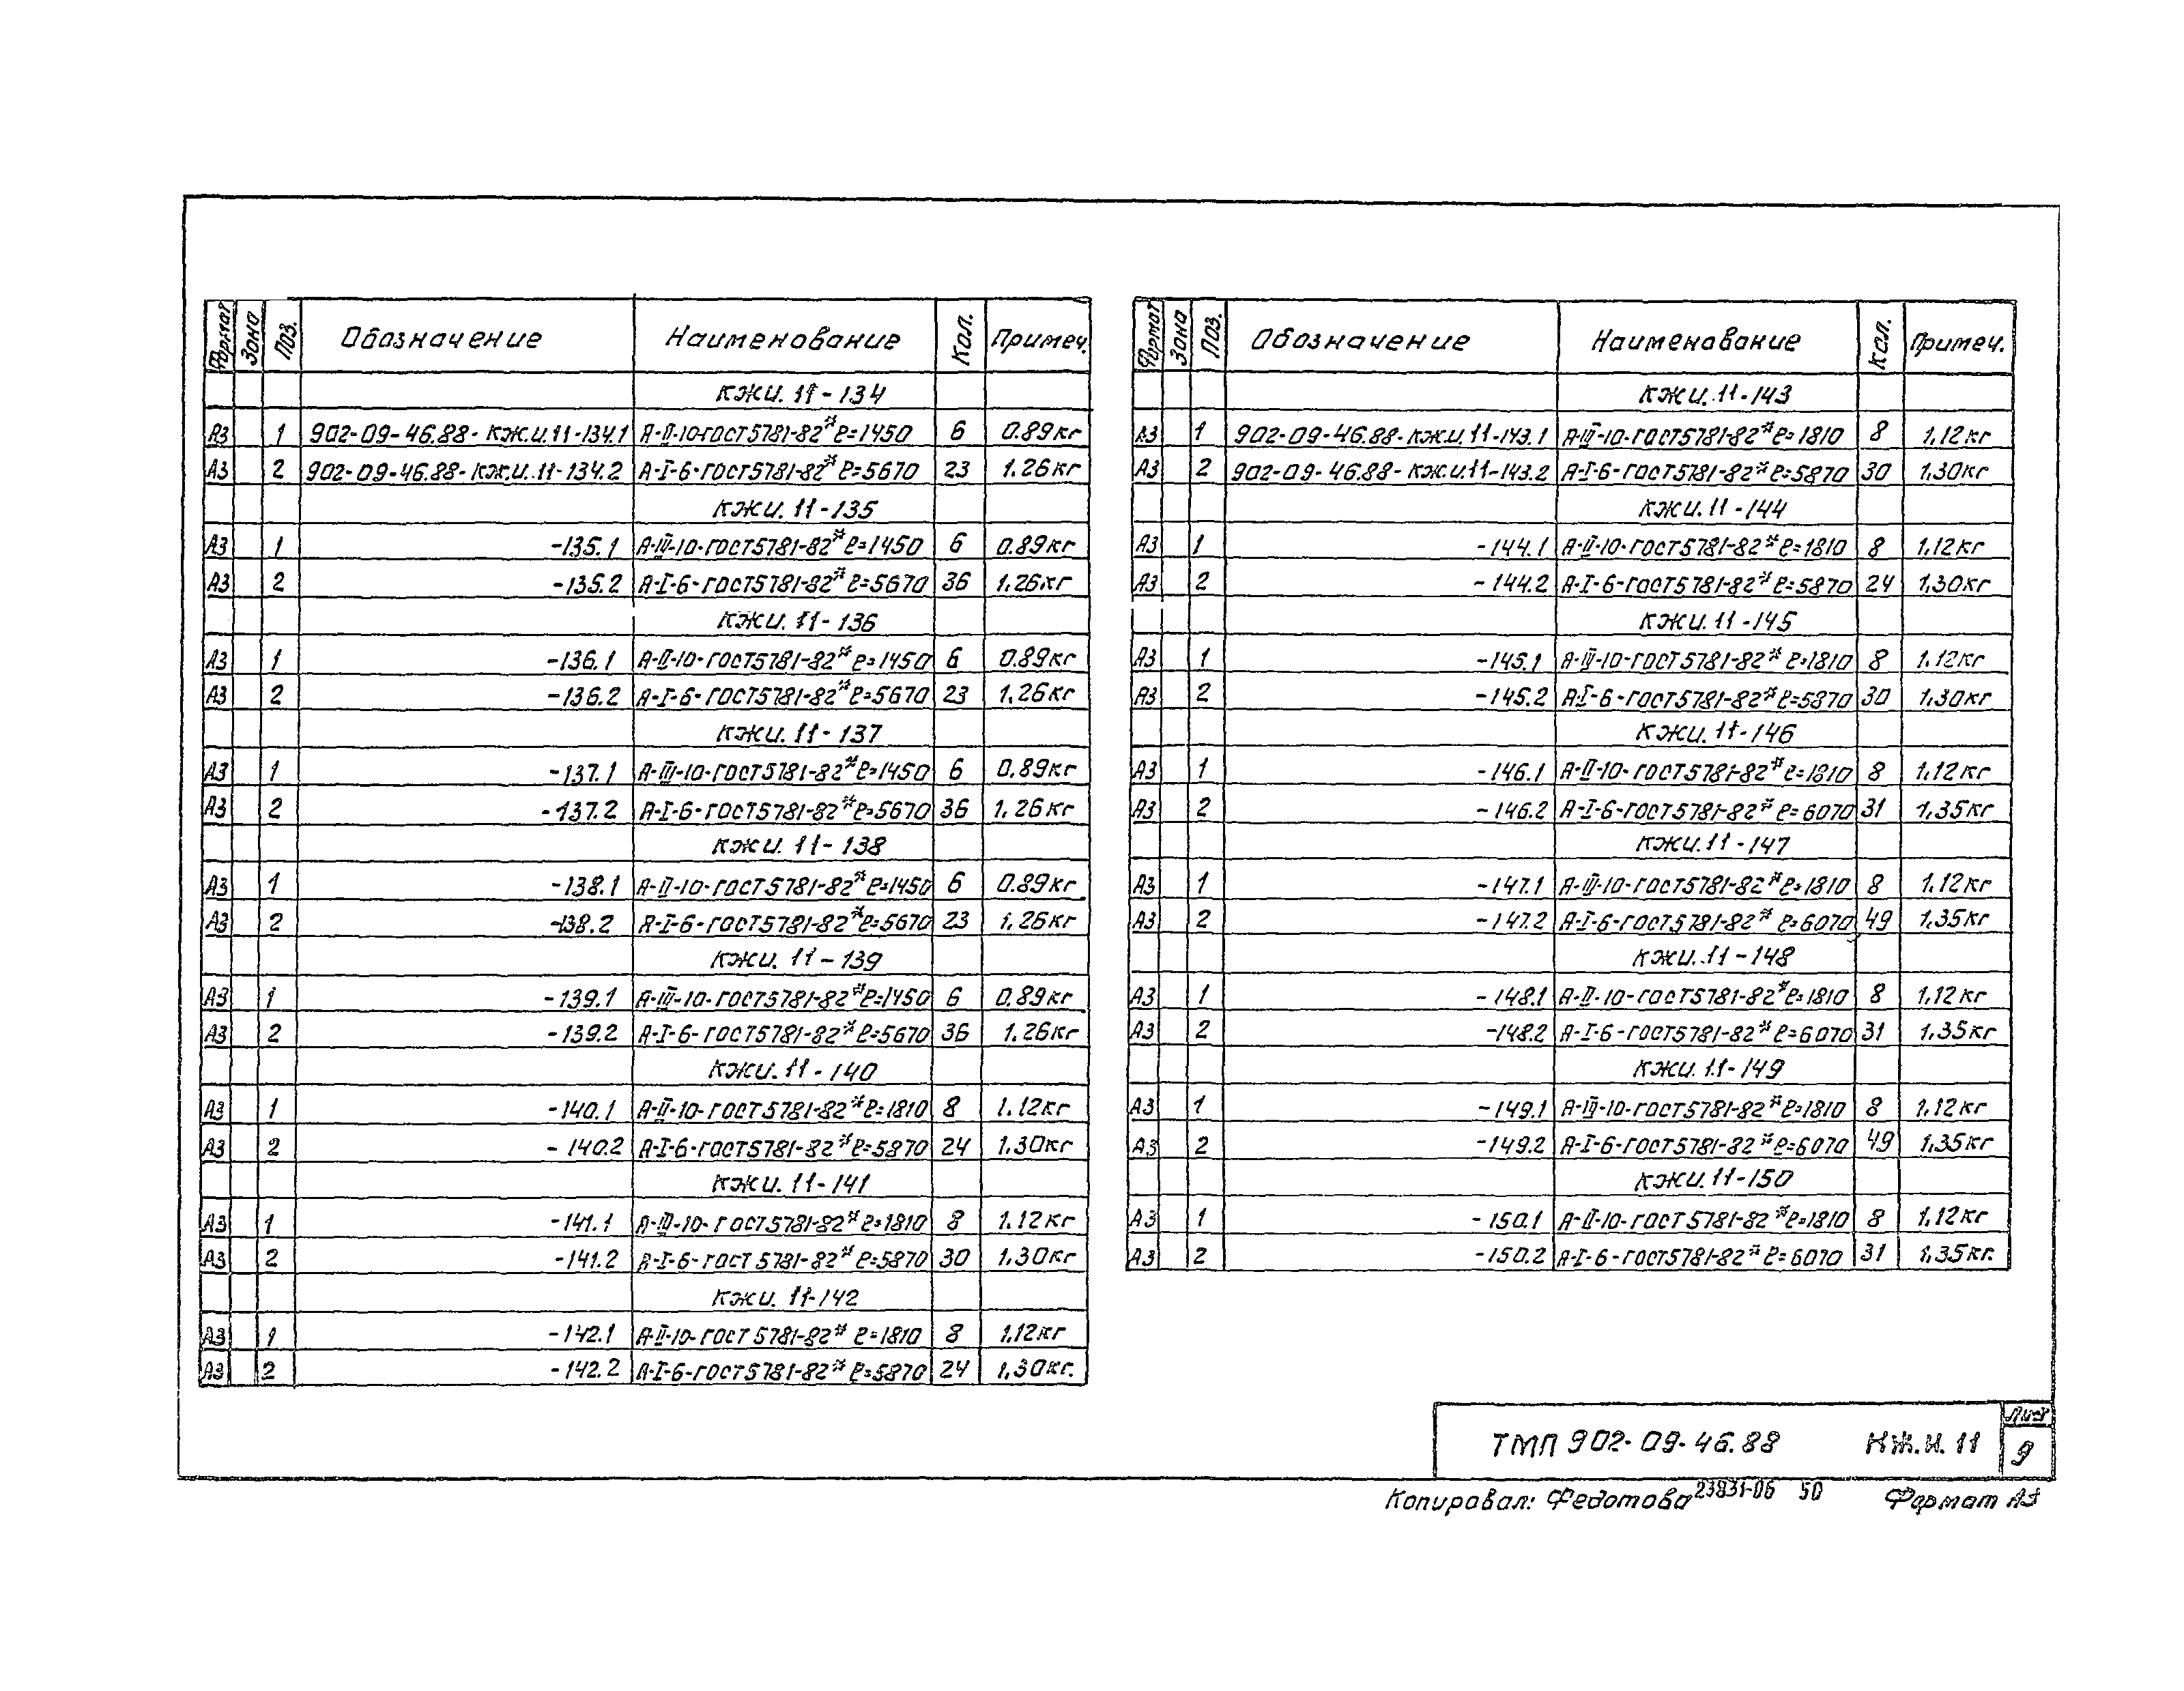 Формат Зона Поз. Обозначение Наименование Кол. Примеч.
КЖИ. 11-134
А3 1 902-09-46.88-КЖ.И.11-134.1 А-II-10-ГОСТ5781-82* ℓ=1450 6 0.89кг
А3 2 902-09-46.88-КЖ.И.11-134.2 А-I-6-ГОСТ5781-82* ℓ=5670 23 1.26кг
КЖИ. 11-135
А3 1 -135.1 А-III-10-ГОСТ5781-82* ℓ=1450 6 0.89кг
А3 2 -135.2 А-I-6-ГОСТ5781-82* ℓ=5670 36 1.26кг
КЖИ. 11-136
А3 1 -136.1 А-II-10-ГОСТ5781-82* ℓ=1450 6 0.89кг
А3 2 -136.2 А-I-6-ГОСТ5781-82* ℓ=5670 23 1.26кг
КЖИ. 11-137
А3 1 -137.1 А-III-10-ГОСТ5781-82* ℓ=1450 6 0.89кг
А3 2 -137.2 А-I-6-ГОСТ5781-82* ℓ=5670 36 1.26кг
КЖИ. 11-138
А3 1 -138.1 А-II-10-ГОСТ5781-82* ℓ=1450 6 0.89кг
А3 2 -138.2 А-I-6-ГОСТ5781-82* ℓ=5670 23 1.26кг
КЖИ. 11-139
А3 1 -139.1 А-III-10-ГОСТ5781-82* ℓ=1450 6 0.89кг
А3 2 -139.2 А-I-6-ГОСТ5781-82* ℓ=5670 36 1.26кг
КЖИ. 11-140
А3 1 -140.1 А-II-10-ГОСТ5781-82* ℓ=1810 8 1.12кг
А3 2 -140.2 А-I-6-ГОСТ5781-82* ℓ=5870 24 1.30кг
КЖИ. 11-141
А3 1 -141.1 А-III-10-ГОСТ5781-82* ℓ=1810 8 1.12кг
А3 2 -141.2 А-I-6-ГОСТ5781-82* ℓ=5870 30 1.30кг
КЖИ. 11-142
А3 1 -142.1 А-II-10-ГОСТ5781-82* ℓ=1810 8 1.12кг
А3 2 -142.2 А-I-6-ГОСТ5781-82* ℓ=5870 24 1.30кг.
Формат Зона Поз. Обозначение Наименование Кол. Примеч.
КЖИ. 11-143
А3 1 902-09-46.88-КЖ.И.11-143.1 А-III-10-ГОСТ5781-82* ℓ=1810 8 1.12кг
А3 2 902-09-46.88-КЖ.И.11-143.2 А-I-6-ГОСТ5781-82* ℓ=5870 30 1.30кг
КЖИ. 11-144
А3 1 -144.1 А-II-10-ГОСТ5781-82* ℓ=1810 8 1.12кг
А3 2 -144.2 А-I-6-ГОСТ5781-82* ℓ=5870 24 1.30кг
КЖИ. 11-145
А3 1 -145.1 А-III-10-ГОСТ5781-82* ℓ=1810 8 1.12кг
А3 2 -145.2 А-I-6-ГОСТ5781-82* ℓ=5870 30 1.30кг
КЖИ. 11-146
А3 1 -146.1 А-II-10-ГОСТ5781-82* ℓ=1810 8 1.12кг
А3 2 -146.2 А-I-6-ГОСТ5781-82* ℓ=6070 31 1.35кг
КЖИ. 11-147
А3 1 -147.1 А-III-10-ГОСТ5781-82* ℓ=1810 8 1.12кг
А3 2 -147.2 А-I-6-ГОСТ5781-82* ℓ=6070 49 1.35кг
КЖИ. 11-148
А3 1 -148.1 А-II-10-ГОСТ5781-82* ℓ=1810 8 1.12кг
А3 2 -148.2 А-I-6-ГОСТ5781-82* ℓ=6070 31 1.35кг
КЖИ. 11-149
А3 1 -149.1 А-III-10-ГОСТ5781-82* ℓ=1810 8 1.12кг
А3 2 -149.2 А-I-6-ГОСТ5781-82* ℓ=6070 49 1.35кг
КЖИ. 11-150
А3 1 -150.1 А-II-10-ГОСТ5781-82* ℓ=1810 8 1.12кг
А3 2 -150.2 А-I-6-ГОСТ5781-82* ℓ=6070 31 1.35кг.
ТМП 902-09-46.88 КЖ.И.11
Лист
9
Копировал: Федотова 23831-06 50 Формат А3